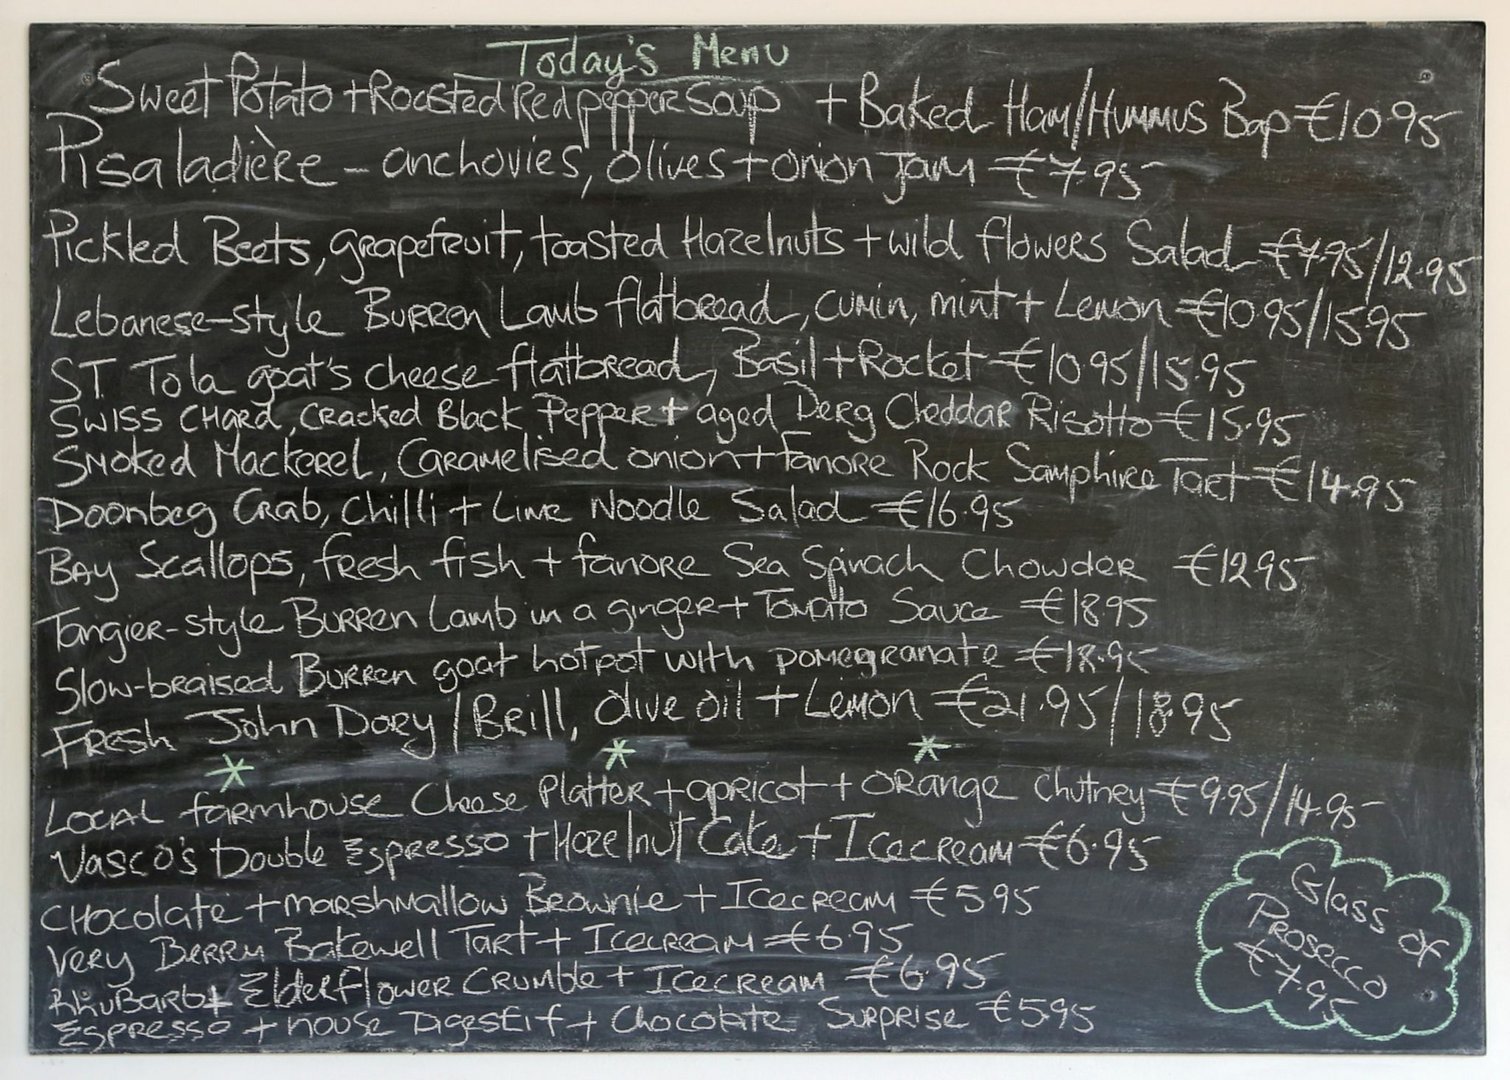 Today's Menu
Sweet Potato + Roasted Red pepper Soup + Baked Ham/Hummus Bap €10.95
Pisaladière - anchovies, olives + onion jam €7.95
Pickled Beets, grapefruit, toasted Hazelnuts + wild flowers Salad €7.95/12.95
Lebanese-style Burren Lamb flatbread, cumin, mint + Lemon €10.95/15.95
ST Tola goat's cheese flatbread, Basil + Rocket €10.95/15.95
Swiss Chard, cracked Black Pepper + aged Derg Cheddar Risotto €15.95
Smoked Mackerel, Caramelised onion + Fanore Rock Samphire Tart €14.95
Doonbeg Crab, Chilli + Lime Noodle Salad €16.95
Bay Scallops, fresh fish + fanore Sea Spinach Chowder €12.95
Tangier-style Burren Lamb in a ginger + Tomato Sauce €18.95
Slow-braised Burren goat hotpot with pomegranate €18.95
Fresh John Dory/Brill, olive oil + Lemon €21.95/18.95
* * *
Local farmhouse Cheese Platter + apricot + orange chutney €9.95/14.95
Vasco's Double Espresso + Hazelnut Cake + Icecream €6.95
Chocolate + marshmallow Brownie + Icecream €5.95
Very Berry Bakewell Tart + Icecream €6.95
Rhubarb + Elderflower Crumble + Icecream €6.95
Espresso + house Digestif + Chocolate Surprise €5.95
Glass of
Prosecco
€7.95